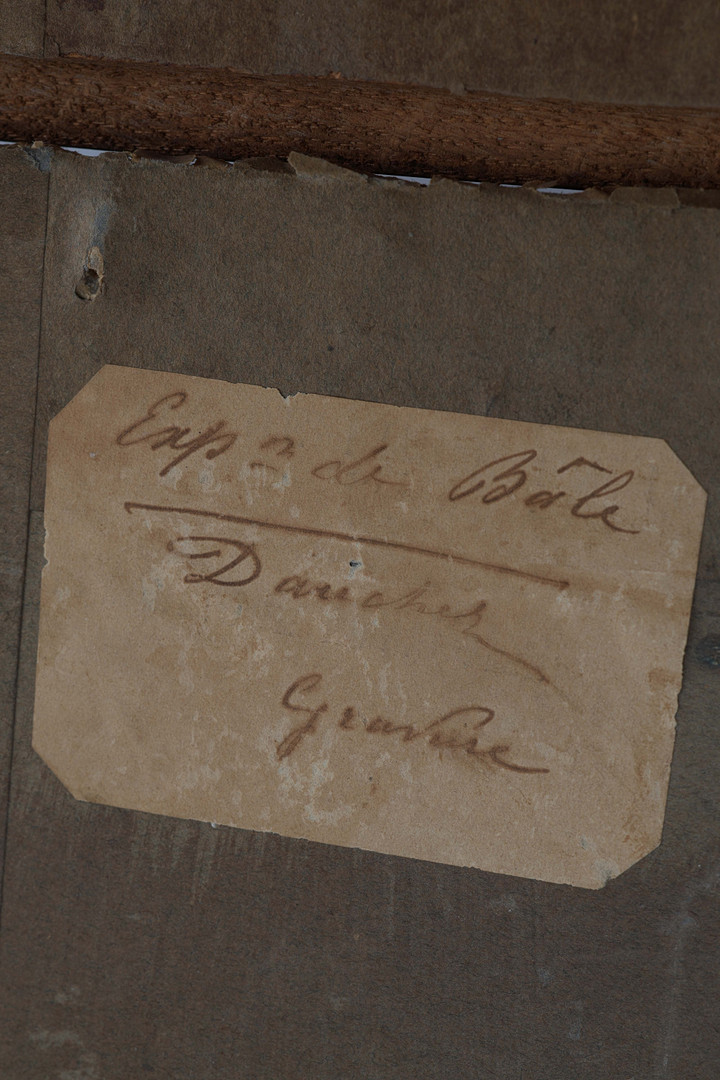 Expⁿ de Bâle
Dauchez
Gravure